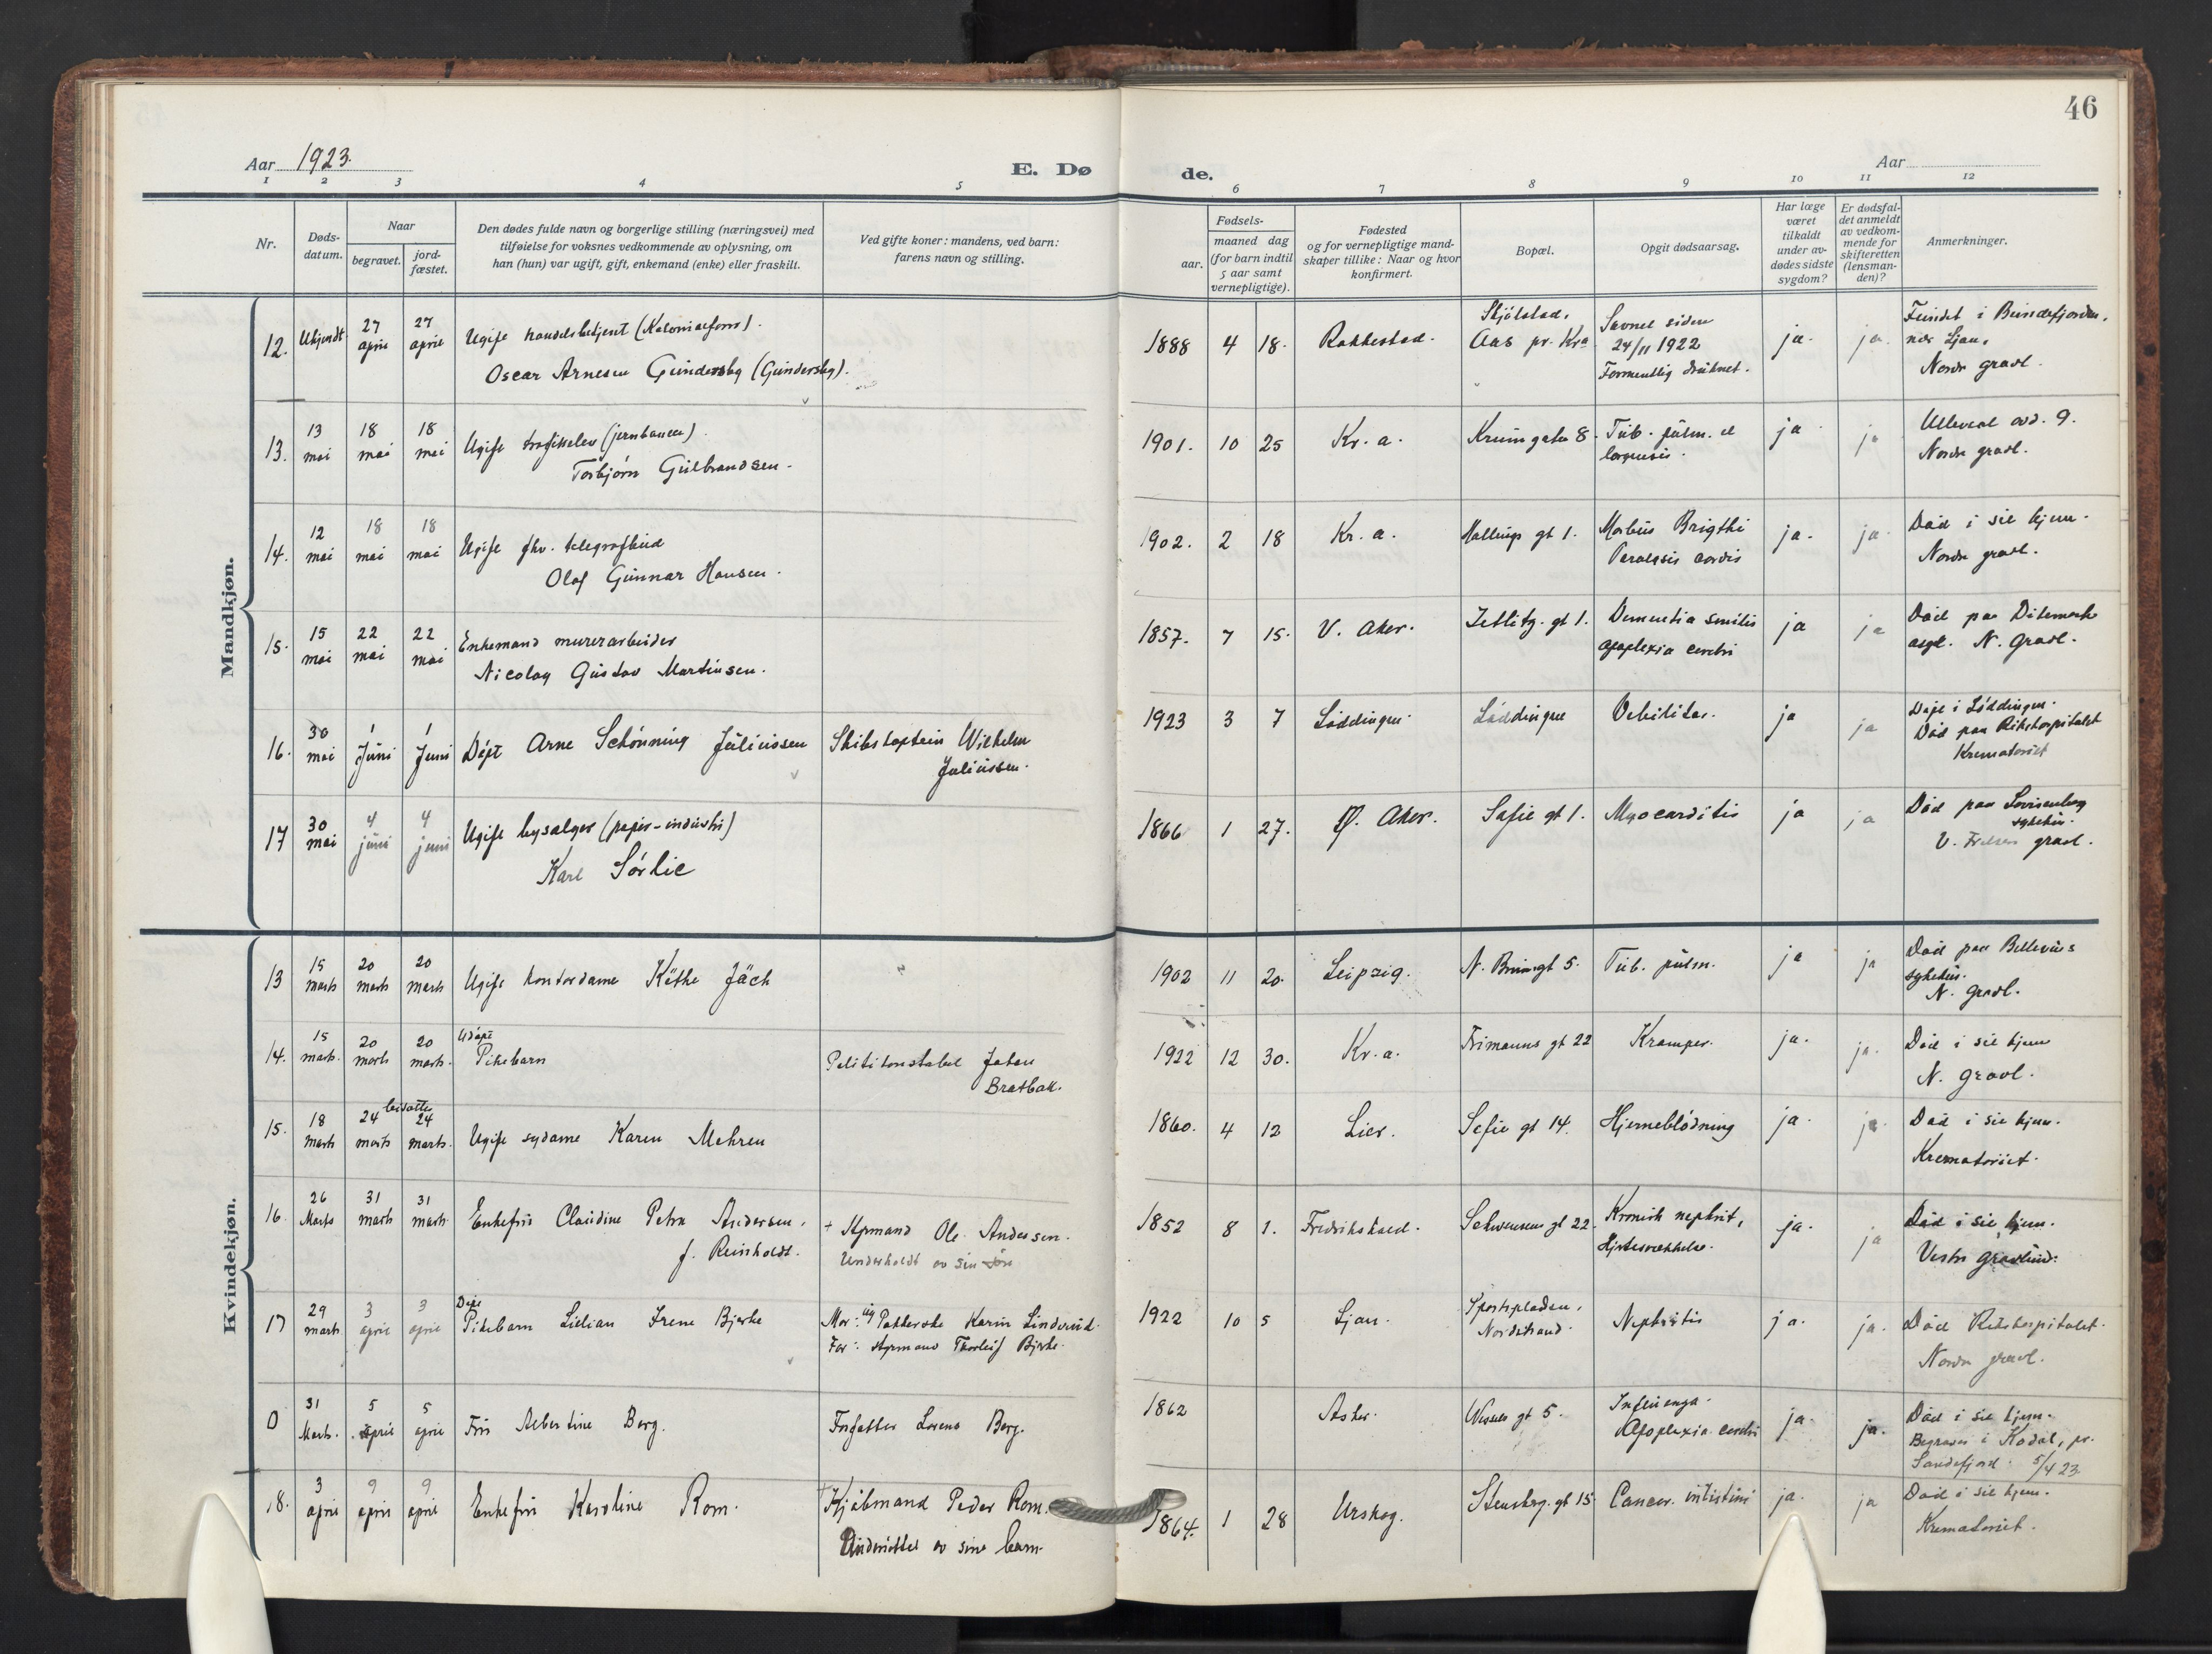 46
Aar 1923.
E. Døde.
Aar
1 2 3 4 5 6 7 8 9 10 11 12
Nr.
Dødsdatum.
Naar
begravet.
jordfæstet.
Den dødes fulde navn og borgerlige stilling (næringsvei) med
tilføielse for voksnes vedkommende av oplysning, om
han (hun) var ugift, gift, enkemand (enke) eller fraskilt.
Ved gifte koner: mandens, ved barn:
farens navn og stilling.
Fødsels-
aar.
maaned dag
(for barn indtil
5 aar samt
vernepligtige).
Fødested
og for vernepligtige mand-
skaper tillike: Naar og hvor
konfirmert.
Bopæl.
Opgit dødsaarsag.
Har læge
været
tilkaldt
under av-
dødes sidste
sygdom?
Er dødsfal-
det anmeldt
av vedkom-
mende for
skifteretten
(lensman-
den)?
Anmerkninger.
Mandkjøn.
12. Ukjendt 27 april 27 april Ugift handelsbetjent (Kolonialforr).
Oscar Arnesen Gundersby (Gundersby).
1888 4 18. Rakkestad. Skjølstad, Aas pr. Kra Savnet siden 24/11 1922 Formentlig druknet. ja. ja. Fundet i Bundefjorden, nær Ljan. Nordr gravl.
13. 13 mai 18 mai 18 mai Ugift trafikelev (jernbanen).
Torbjørn Gulbrandsen.
1901. 10 25 Kr.a. Krumgaten 8. Tub. pulm. et laryngis. ja ja Ulleval avd. 9. Nordr gravl.
14. 12 mai 18 mai 18 mai Ugift fhv. telegrafbud
Olaf Gunnar Hansen.
1902. 2 18 Kr.a. Mallings gt 1. Morbus Brigthi Paralysis cordis ja. ja. Død i sit hjem. Nordr gravl.
15. 15 mai 22 mai 22 mai Enkemand murerarbeider
Nicolay Gustav Martinsen.
1857. 7 15. V. Aker. Zetlitz. gt 1. Dementia senilis apoplexia cerebri ja ja Død paa Dikemark asyl. N. Gravl.
16. 30 mai 1 Juni 1 Juni Døpt Arne Schønning Juliussen Skibskaptein Wilhelm Juliussen.
1923 3 7 Løddingen. Løddingen Debilitas. ja ja Døpt i Løddingen. Død paa Rikshospitalet Krematoriet
17 30 mai 4 juni 4 juni Ugift bysælger (papir-industri)
Karl Sørlie
1866 1 27. Ø. Aker. Sofie gt 1. Myocarditis ja ja Død paa Lovisenberg sykehus. V. Frelsers gravl.
Kvindekjøn.
13 15 marts 20 marts 20 marts Ugift kontordame Käthe Jäch
1902 11 20. Leipzig. N. Brungt 5. Tub. pulm. ja ja Død paa Bellevues sykehus. N. Gravl.
14. 15 marts. 20 marts 20 marts. Udøpt Pikebarn Politikonstabel Johan Bratbak.
1922 12 30. Kr.a. Frimanns gt 22 Kramper. ja. ja. Død i sit hjem N. Gravl.
15. 18 marts 24 marts bisatte 24 marts. Ugift sydame Karen Mehren
1860. 4 12 Lier. Sofie gt 14. Hjerneblødning ja. ja. Død i sit hjem. Krematoriet.
16. 26 Marts 31 marts 31 marts Enkefru Claudine Petra Andersen, f. Reinholdt. + Styrmand Ole Andersen. Underholdt av sin søn
1852 8 1. Fredrikshald. Schwensens gt 22. Kronisk nephrit, Hjertesvækkelse. ja. ja Død i sit hjem. Vestr gravlund.
17 29 marts 3 april 3 april Døpt Pikebarn Lilian Irene Bjerke Mor: ug. Pakkerske Karin Lindsrud. Far: styrmand Thorleif Bjerke.
1922 10 5 Ljan. Sportspladsen, Nordstrand. Nephritis ja. ja. Død Rikshospitalet. Nordr gravl.
0 31 Marts. 5 april 5 april Fru Albertine Berg. Forfatter Lorens Berg.
1862 Asker. Wessels gt 5. Influenza. Apoplexia cerebri ja. ja. Død i sit hjem. Begraves i Kodal, pr. Sandefjord. 5/4 23.
18. 3 april 9 april 9 april Enkefru Karoline Rom. + Kjøbmand Peder Rom. Understøttet av sine barn.
1864. 1 28 Urskog. Stensberg. gt 15 Cancer. intistini ja. ja Død i sit hjem. Krematoriet.